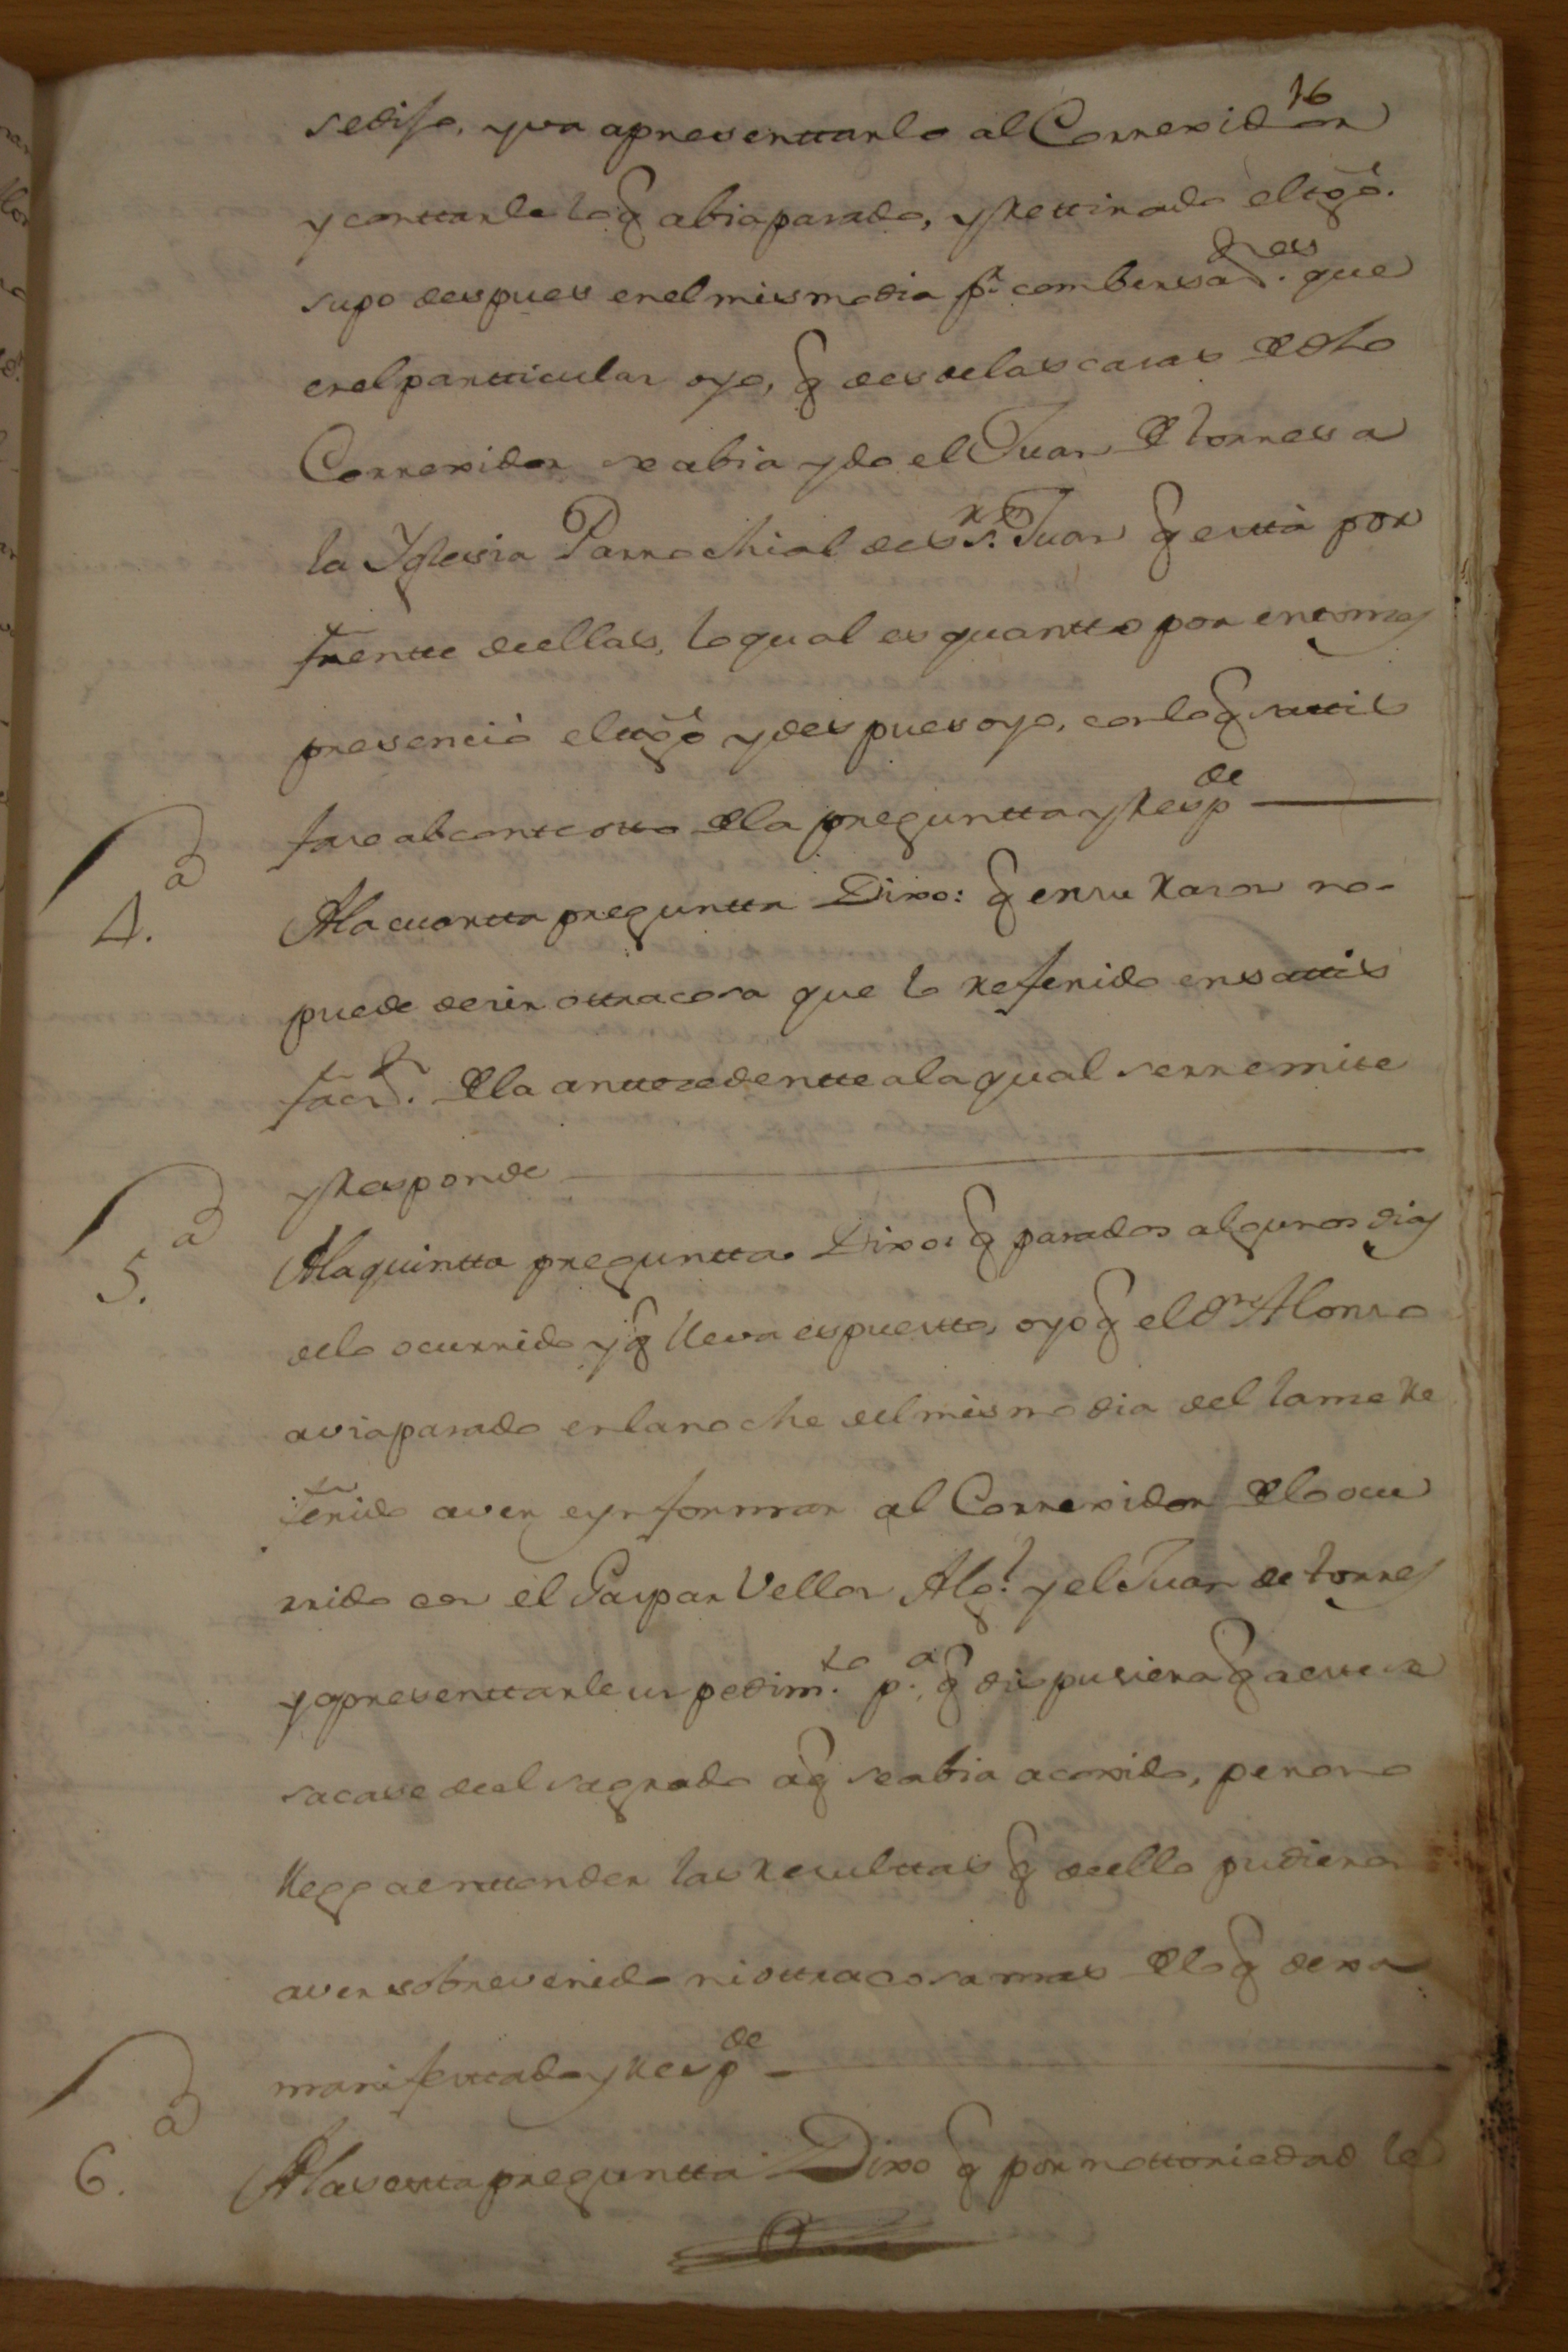 16
se diso, yva apresenttarlo al Correxidor
y conttarle lo q̃ abia pasado, y Rettirado el tgo͂.
supo despues en el mismo dia pr. combersanes. que
en el partticular oyo, q̃ desde las casas de dho
Correxidor se abia ydo el Juan de torres a
la Yglesia Parrochial de sr. sn. Juan q̃ está por
frentte de ellas, lo qual es quantto por entonzs
presenció el ttgo͂ y despues oyo, con lo q̃ sattis
face al conttestto de la preguntta y Respde
4.a
A la cuartta preguntta Dixo: q̃ en su Razon no
puede desir ottra cosa que lo Referido en sattis
facn. de la anttezedentte a la qual se rremite
y Responde
5.a
A la quintta preguntta Dixo: q̃ pasados algunos dias
de lo ocurrido y q̃ lleva espuestto, oyo q̃ el dn Alonso
avia pasado en la noche del mismo dia del lanze Re
ferido a ver e ynformar al Correxidor de lo ocu
rrido con el Gaspar Vellon Algl. y el Juan de torres
y a presenttarle un pedimto. pa. q̃ dispusiera q̃ a estte se
sacase de el sagrado a q̃ se abia acoxido, pero no
llego a enttender las Resulttas q̃ de ello pudieron
aver sobrevenido ni ottra cosa mas de lo q̃ dexa
manifesttado y Respde
6.a
A la sestta preguntta Dixo q̃ por nottoriedad le